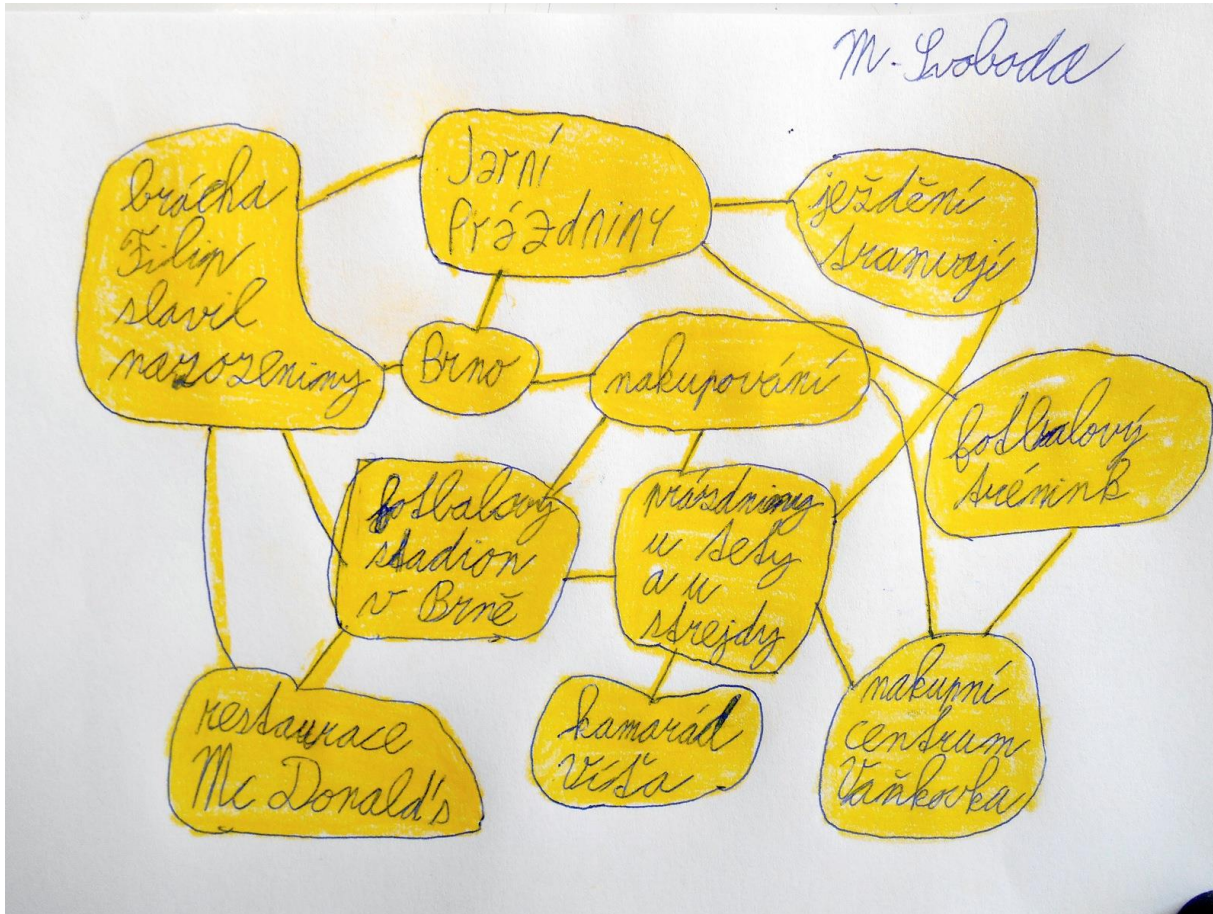 M. Svoboda
Jarní
Prázdniny
brácha
Filip
slavil
narozeniny
ježdění
tramvají
Brno
nakupování
fotbalový
trénink
fotbalový
stadion
v Brně
prázdniny
u tety
a u
strejdy
restaurace
Mc Donald's
kamarád
Víťa
nakupní
centrum
Vaňkovka